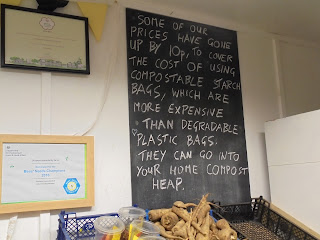 SOME OF OUR
PRICES HAVE GONE
UP BY 10p, TO COVER
THE COST OF USING
COMPOSTABLE STARCH
BAGS, WHICH ARE
MORE EXPENSIVE
THAN DEGRADABLE
PLASTIC BAGS.
THEY CAN GO INTO
YOUR HOME COMPOST
HEAP.